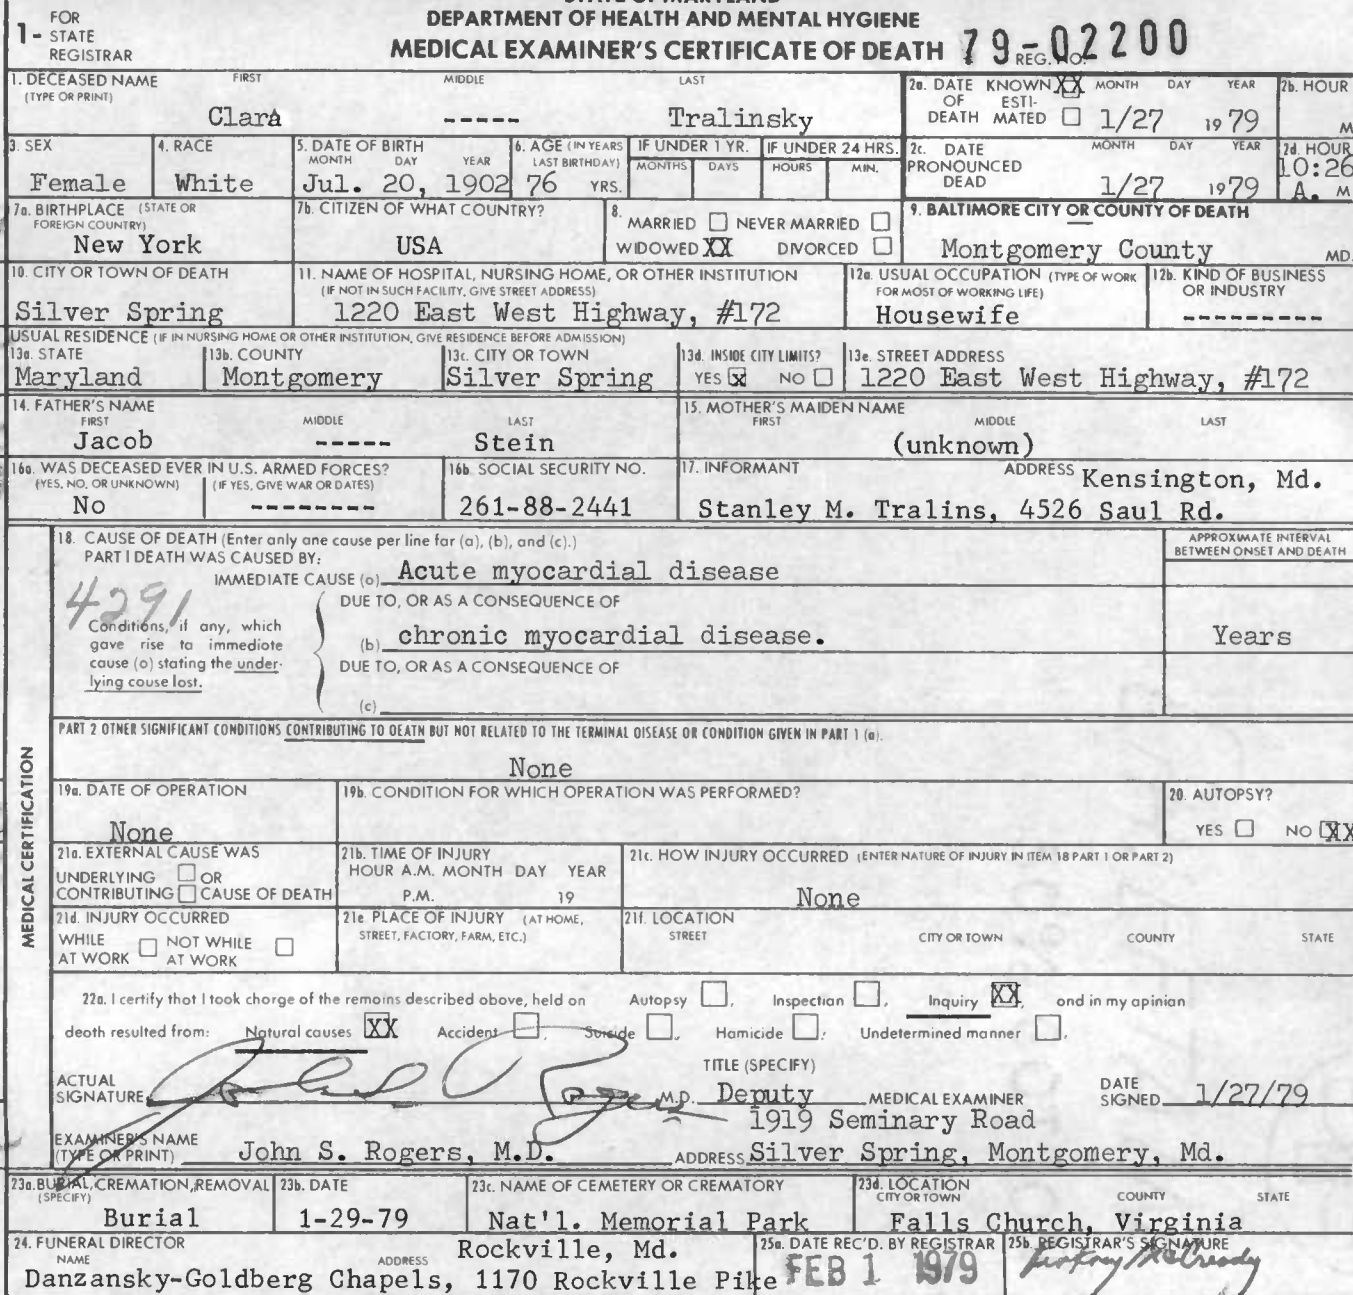 STATE OF MARYLAND
DEPARTMENT OF HEALTH AND MENTAL HYGIENE
MEDICAL EXAMINER'S CERTIFICATE OF DEATH 79-02200
1- FOR STATE REGISTRAR REG. No.
1. DECEASED NAME (TYPE OR PRINT) FIRST MIDDLE LAST
Clara ----- Tralinsky
2a. DATE OF DEATH KNOWN XX ESTIMATED ☐ MONTH DAY YEAR
1/27 1979
2b. HOUR M
3. SEX
Female
4. RACE
White
5. DATE OF BIRTH MONTH DAY YEAR
Jul. 20, 1902
6. AGE (IN YEARS LAST BIRTHDAY)
76 YRS.
IF UNDER 1 YR. MONTHS DAYS
IF UNDER 24 HRS. HOURS MIN.
2c. DATE PRONOUNCED DEAD MONTH DAY YEAR
1/27 1979
2d. HOUR
10:26
A. M
7a. BIRTHPLACE (STATE OR FOREIGN COUNTRY)
New York
7b. CITIZEN OF WHAT COUNTRY?
USA
8. MARRIED ☐ NEVER MARRIED ☐
WIDOWED XX DIVORCED ☐
9. BALTIMORE CITY OR COUNTY OF DEATH
Montgomery County MD.
10. CITY OR TOWN OF DEATH
Silver Spring
11. NAME OF HOSPITAL, NURSING HOME, OR OTHER INSTITUTION
(IF NOT IN SUCH FACILITY, GIVE STREET ADDRESS)
1220 East West Highway, #172
12a. USUAL OCCUPATION (TYPE OF WORK FOR MOST OF WORKING LIFE)
Housewife
12b. KIND OF BUSINESS OR INDUSTRY
---------
USUAL RESIDENCE (IF IN NURSING HOME OR OTHER INSTITUTION, GIVE RESIDENCE BEFORE ADMISSION)
13a. STATE
Maryland
13b. COUNTY
Montgomery
13c. CITY OR TOWN
Silver Spring
13d. INSIDE CITY LIMITS?
YES X NO ☐
13e. STREET ADDRESS
1220 East West Highway, #172
14. FATHER'S NAME FIRST MIDDLE LAST
Jacob ----- Stein
15. MOTHER'S MAIDEN NAME FIRST MIDDLE LAST
(unknown)
16a. WAS DECEASED EVER IN U.S. ARMED FORCES?
(YES, NO, OR UNKNOWN) (IF YES, GIVE WAR OR DATES)
No --------
16b. SOCIAL SECURITY NO.
261-88-2441
17. INFORMANT ADDRESS Kensington, Md.
Stanley M. Tralins, 4526 Saul Rd.
18. CAUSE OF DEATH (Enter only one cause per line for (a), (b), and (c).)
PART I DEATH WAS CAUSED BY:
APPROXIMATE INTERVAL BETWEEN ONSET AND DEATH
IMMEDIATE CAUSE (a) Acute myocardial disease
4291
DUE TO, OR AS A CONSEQUENCE OF
Conditions, if any, which gave rise to immediate cause (a) stating the underlying cause last.
(b) chronic myocardial disease. Years
DUE TO, OR AS A CONSEQUENCE OF
(c)
MEDICAL CERTIFICATION
PART 2 OTHER SIGNIFICANT CONDITIONS CONTRIBUTING TO DEATH BUT NOT RELATED TO THE TERMINAL DISEASE OR CONDITION GIVEN IN PART 1 (a).
None
19a. DATE OF OPERATION
None
19b. CONDITION FOR WHICH OPERATION WAS PERFORMED?
20. AUTOPSY?
YES ☐ NO XX
21a. EXTERNAL CAUSE WAS
UNDERLYING ☐ OR
CONTRIBUTING ☐ CAUSE OF DEATH
21b. TIME OF INJURY
HOUR A.M. MONTH DAY YEAR
P.M. 19
21c. HOW INJURY OCCURRED (ENTER NATURE OF INJURY IN ITEM 18 PART 1 OR PART 2)
None
21d. INJURY OCCURRED
WHILE AT WORK ☐ NOT WHILE AT WORK ☐
21e. PLACE OF INJURY (AT HOME, STREET, FACTORY, FARM, ETC.)
21f. LOCATION
STREET CITY OR TOWN COUNTY STATE
22a. I certify that I took charge of the remains described above, held on Autopsy ☐, Inspection ☐, Inquiry XX, and in my opinion
death resulted from: Natural causes XX Accident ☐, Suicide ☐, Homicide ☐, Undetermined manner ☐,
ACTUAL SIGNATURE John S Rogers M.D.
TITLE (SPECIFY)
Deputy MEDICAL EXAMINER
DATE SIGNED 1/27/79
1919 Seminary Road
EXAMINER'S NAME (TYPE OR PRINT) John S. Rogers, M.D. ADDRESS Silver Spring, Montgomery, Md.
23a. BURIAL, CREMATION, REMOVAL (SPECIFY)
Burial
23b. DATE
1-29-79
23c. NAME OF CEMETERY OR CREMATORY
Nat'l. Memorial Park
23d. LOCATION CITY OR TOWN COUNTY STATE
Falls Church, Virginia
24. FUNERAL DIRECTOR
NAME ADDRESS Rockville, Md.
Danzansky-Goldberg Chapels, 1170 Rockville Pike
25a. DATE REC'D. BY REGISTRAR
FEB 1 1979
25b. REGISTRAR'S SIGNATURE